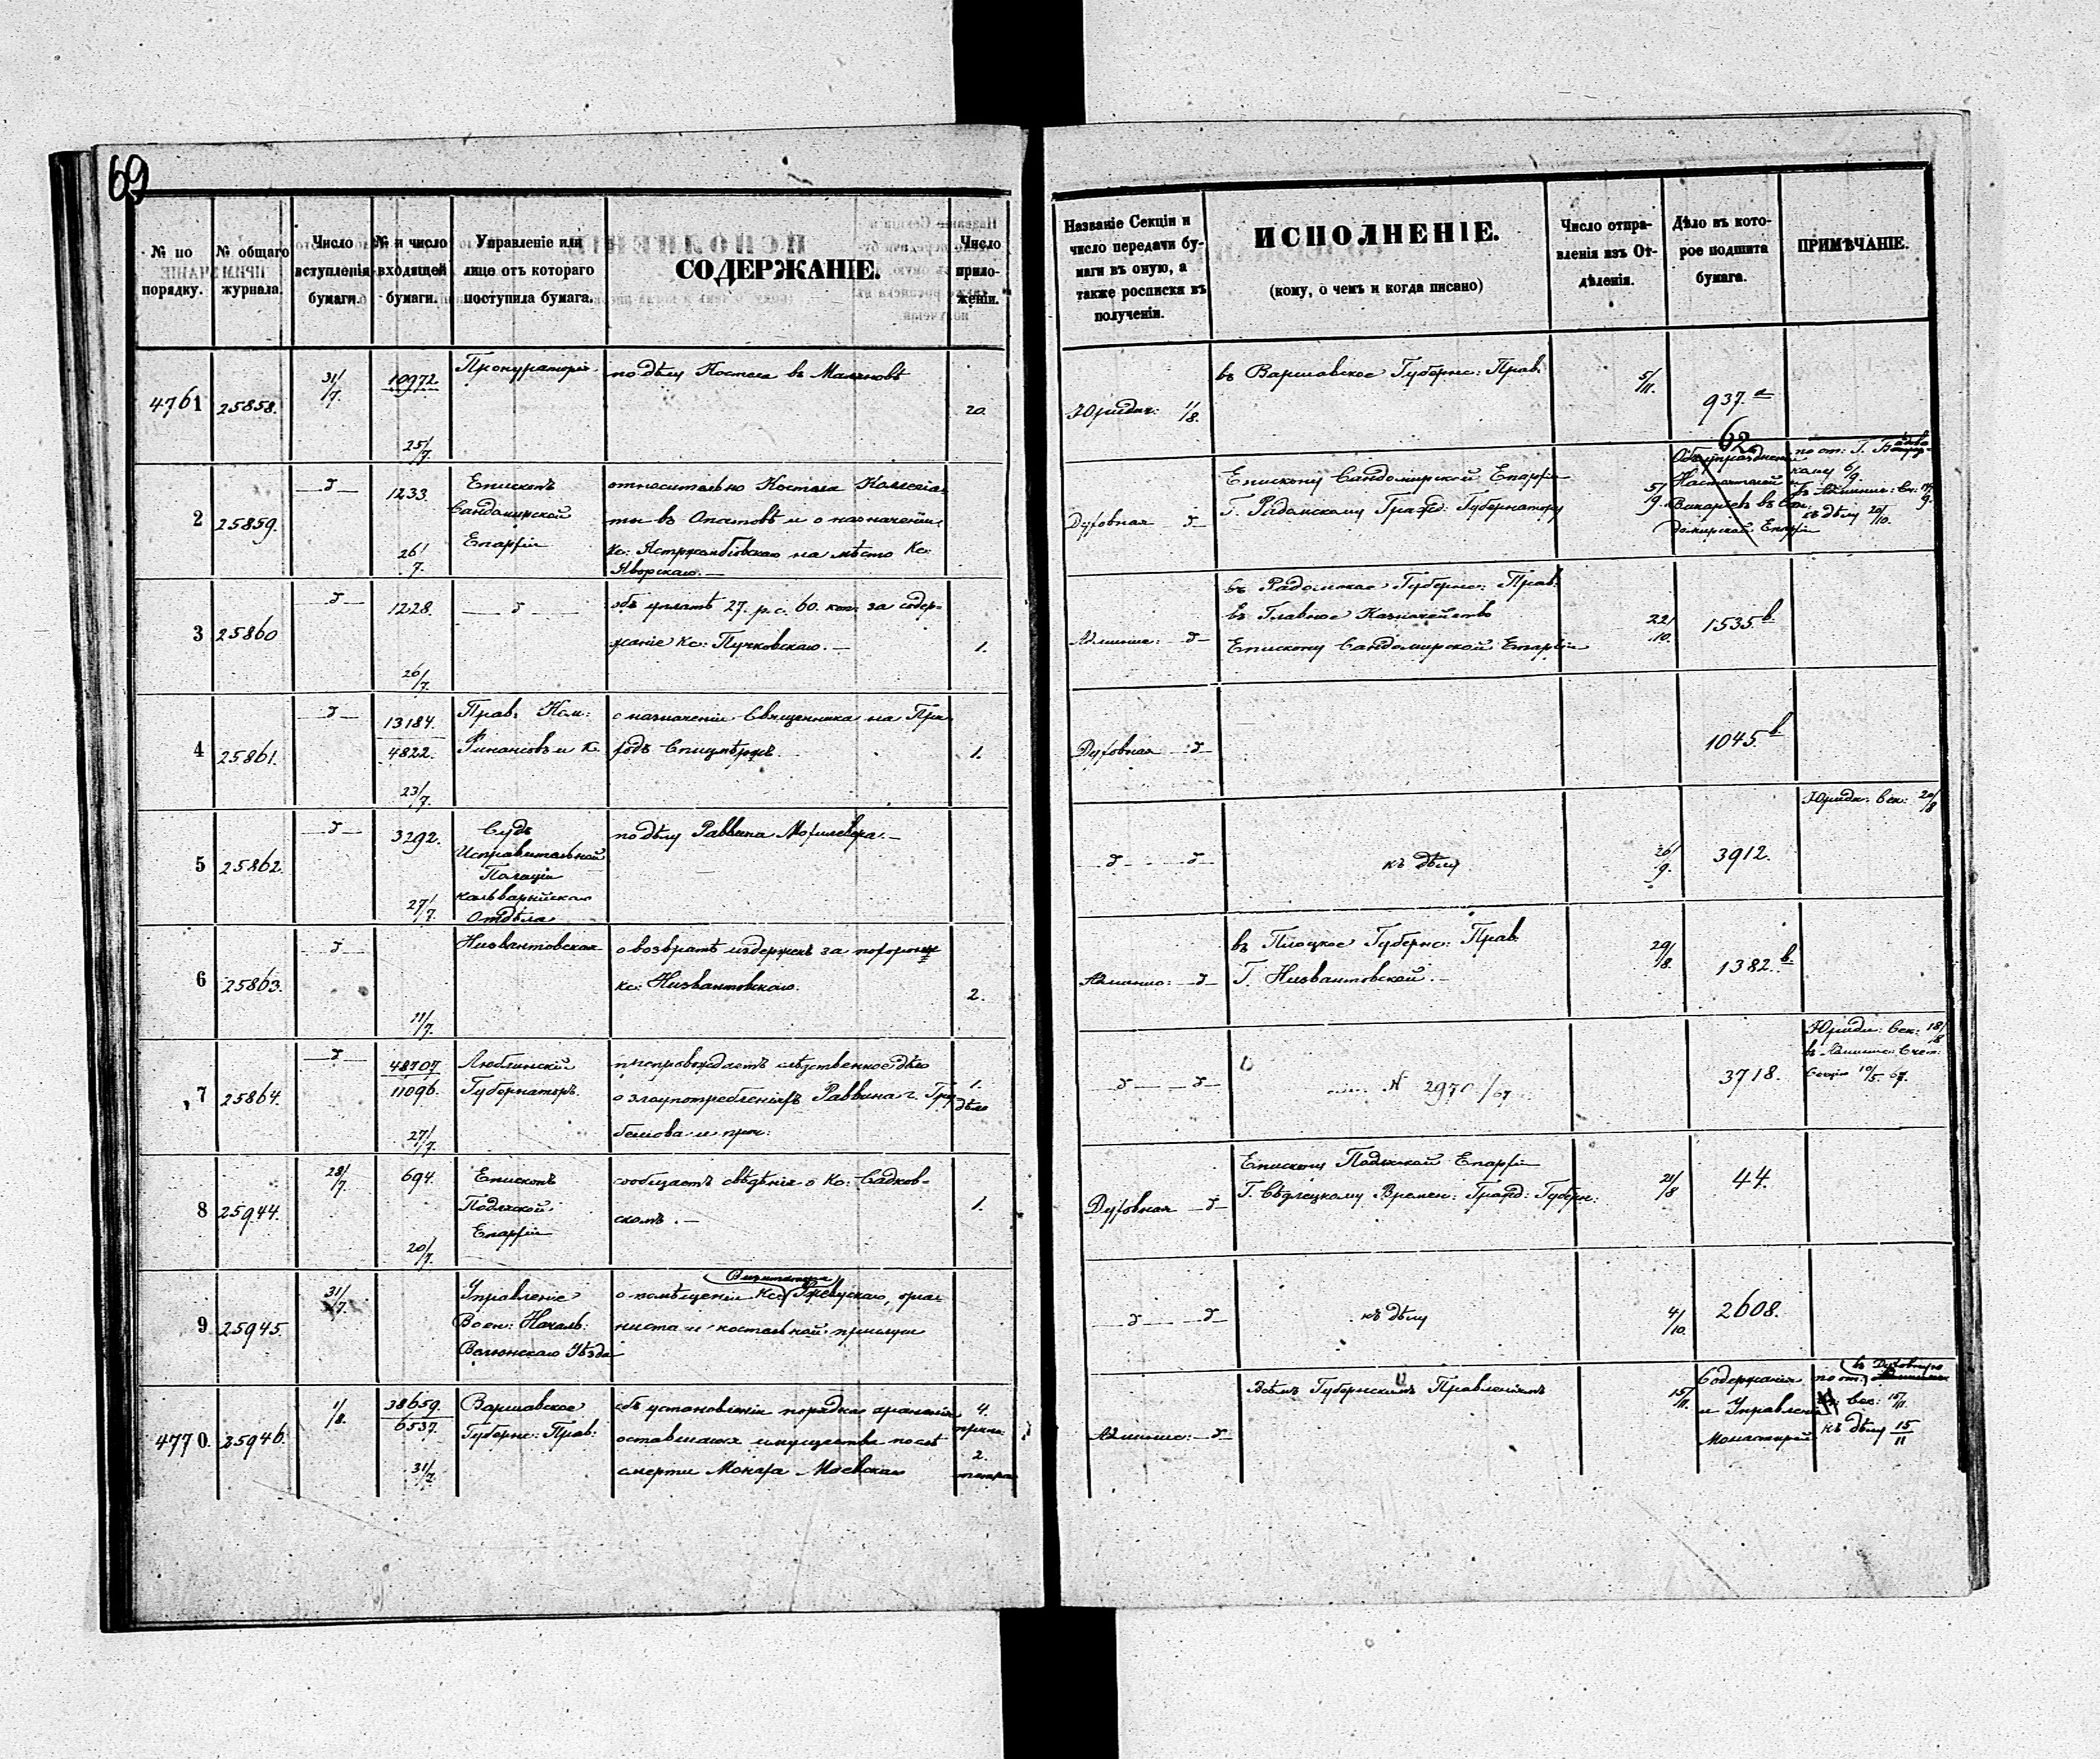 69
№ по порядку.
№ общаго журнала.
Число вступленія бумаги.
№ и число входящей бумаги.
Управленіе или лице отъ котораго поступила бумага.
СОДЕРЖАНІЕ.
Число приложеніи.
Названіе Секціи и число передачи бумаги въ оную, а также росписки въ полученіи.
ИСПОЛНЕНІЕ.
(кому, о чемъ и когда писано)
Число отправленія изъ Отдѣленія.
Дѣло въ которое подшита бумага.
ПРИМѢЧАНІЕ.
4761 25858. 31/7. 10972 25/7 Прокураторія по дѣлу Костела въ 20. Юридич: 1/8. въ Варшавское Губернс: Прав. 5/11. 937.a
62
2 25859. —д— 1233. 26/7. Епископъ
Сандомирской
Епархіи
относительно Костела Коллегіа
ты въ Опатовѣ и о назначеніи
Кс: Ястржембіовскаго на мѣсто Кс:
Яворскаго.—
Духовная —д—
Епископу Сандомирской Епархіи
Г. Радомскому Гражд: Губернатору
5/9.
Объ упраздненіи
Настоятелей и
Викаріевъ въ Сан
домирской Епархіи
по от: Г.
кому 6/9.
къ дѣлу 20/10.
3 25860 —д— 1228. 26/7. —д—
объ уплатѣ 27. р. с. 60. коп: за содер-
жаніе Кс: Пучковскаго.—
1. Админис: —д—
въ Радомское Губернс: Прав:
въ Главное Казначейство
Епископу Сандомирской Епархіи
22/10. 1535.b
4 25861. —д— 13184. 4822. 23/7. Прав: Ком:
Финансовъ и К.
о назначеніи Священника на При
ходъ
1. Духовная —д— 1045.b
5 25862. —д— 3292. 27/7. Судъ
Исправительной
Полиціи
Кальварійскаго
Отдѣла
по дѣлу Раввина Могилевера.—
—д— —д— къ дѣлу 26/9. 3912. Юриди: Сек: 20/8
6 25863. —д— 11/7. Низвантовская
о возвратѣ издержекъ за похороны
Кс: Низвантовскаго.
2. Админис: —д—
въ Плоцкое Губернс: Прав.
Г. Низвантовской.—
29/8. 1382.b
7 25864. —д— 48707 11096. 27/7. Люблинскій
Губернаторъ.
препровождаетъ слѣдственное дѣло
о злоупотребленіяхъ Раввина г. Гру
бешова и проч:
1. дѣло —д— —д— № 2970/67 3718.
Юриди: Сек: 18/8
въ Админис: Счет:
Секцію 10/5. 67.
8 25944. 28/7. 694. 20/7. Епископъ
Подляской
Епархіи
сообщаетъ свѣдѣнія о Кс: Садков-
скомъ.—
1. Духовная —д—
Епископу Подляской Епархіи
Г. Сѣдлецкому Времен: Гражд: Губерн:
21/8 44.
9 25945. 31/7. Управленіе
Воен: Началь:
Велюнскаго Уѣзда
о помѣщеніи Кс: Ржевускаго, орга
ниста и костельной прислуги
—д— —д— къ дѣлу 4/10. 2608.
4770. 25946. 1/8. 38659. 6537. 31/7. Варшавское
Губернс: Прав:
объ установленіи порядка храненія
оставшагося имущества послѣ
смерти Монаха Маевскаго
4. 2. Админис: —д—
Всѣмъ Губернскимъ Правленіямъ
15/11.
Содержанія
и Управленія
Монастырей
въ Духовную
по от.
Сек: 15/11.
къ дѣлу 15/11